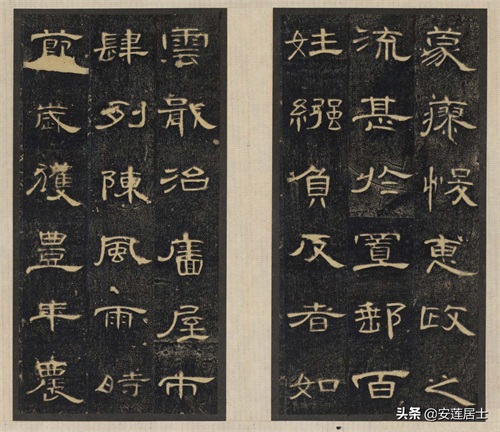 蒙瘳悛惠政之
流甚於置郵百
姓繦負反者如
雲戢治廧屋市
肆列陳風雨時
節歲獲豊年農
头条 @安莲居士